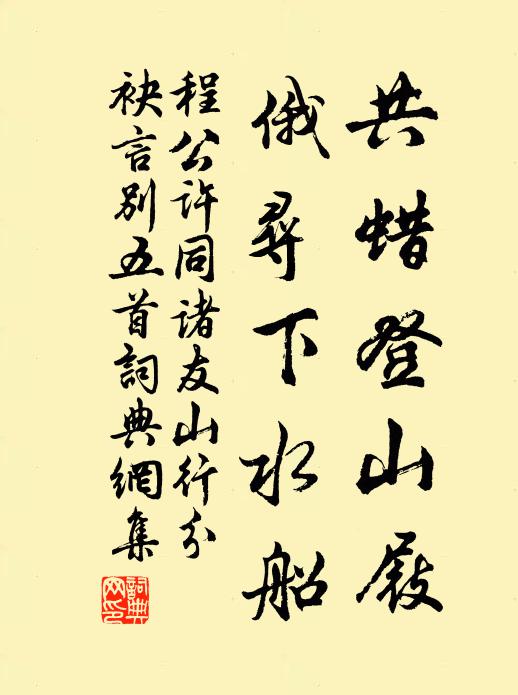 共蜡登山屐
俄尋下水船
程公许同诸友山行分
袂言别五首詞典網集
詞典網印